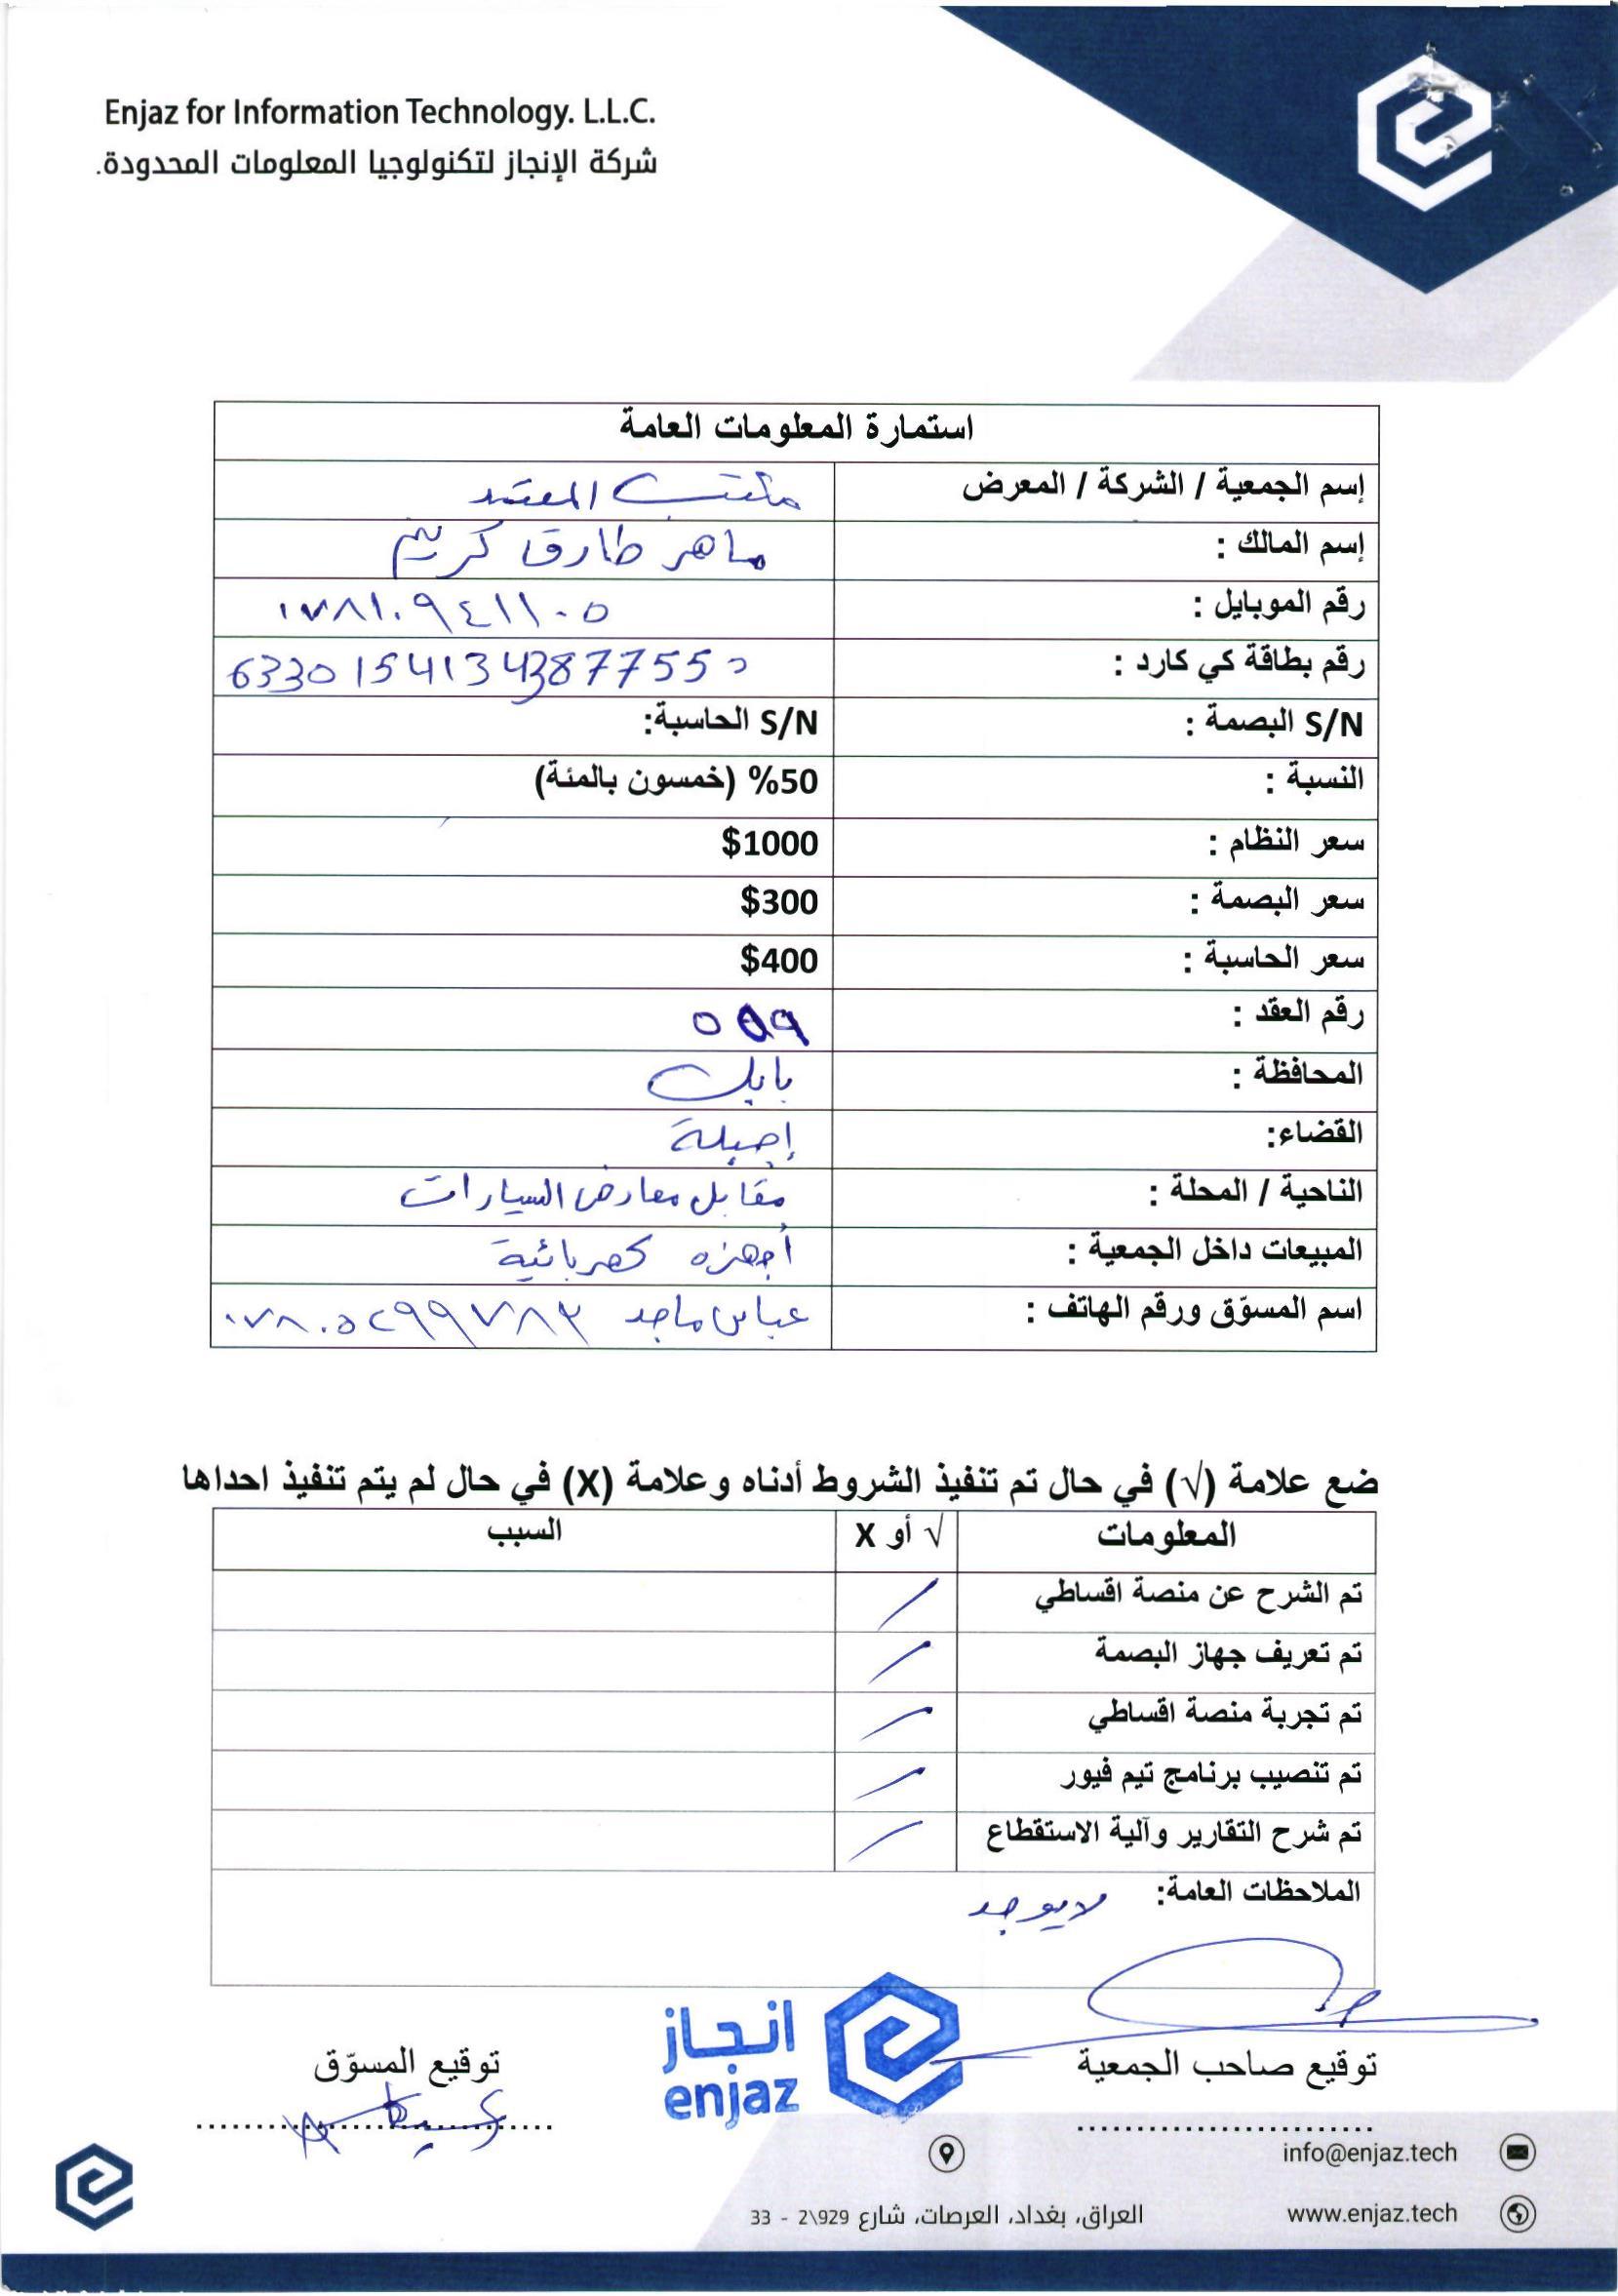 Enjaz for Information Technology. L.L.C.
شركة الإنجاز لتكنولوجيا المعلومات المحدودة.
استمارة المعلومات العامة
إسم الجمعية / الشركة / المعرض مكتب المعتمد
إسم المالك : ماهر طارق كريم
رقم الموبايل : ٠٧٨١٠٩٤١١٠٥
رقم بطاقة كي كارد : 6330154134387755
S/N البصمة : S/N الحاسبة:
النسبة : 50% (خمسون بالمئة)
سعر النظام : 1000$
سعر البصمة : 300$
سعر الحاسبة : 400$
رقم العقد :
المحافظة : بابل
القضاء:
الناحية / المحلة : مقابل معارض السيارات
المبيعات داخل الجمعية : أجهزه كهربائية
اسم المسوّق ورقم الهاتف : عباس ماجد ٠٧٨٠٥٢٩٩٧٨٢
ضع علامة (√) في حال تم تنفيذ الشروط أدناه وعلامة (X) في حال لم يتم تنفيذ احداها
المعلومات √ أو X السبب
تم الشرح عن منصة اقساطي
تم تعريف جهاز البصمة
تم تجربة منصة اقساطي
تم تنصيب برنامج تيم فيور
تم شرح التقارير وآلية الاستقطاع
الملاحظات العامة: لايوجد
انجاز
enjaz
توقيع صاحب الجمعية توقيع المسوّق
info@enjaz.tech
www.enjaz.tech
العراق، بغداد، العرصات، شارع 929\2 - 33